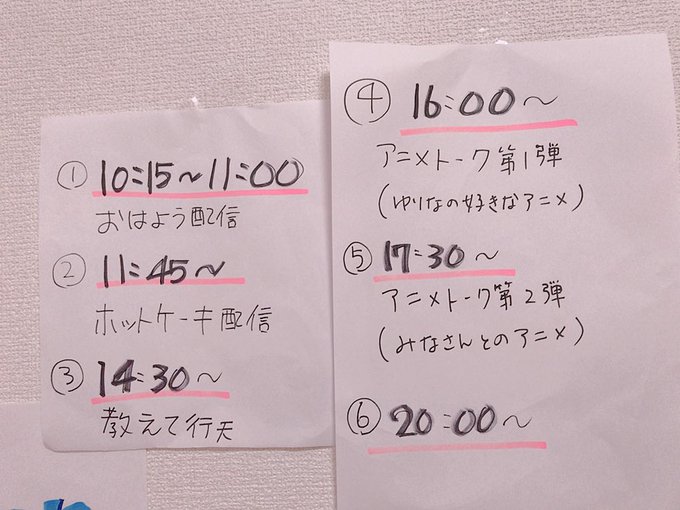 ① 10:15〜11:00
おはよう配信
② 11:45〜
ホットケーキ配信
③ 14:30〜
教えて行天
④ 16:00〜
アニメトーク第1弾
(ゆりなの好きなアニメ)
⑤ 17:30〜
アニメトーク第2弾
(みなさんとのアニメ)
⑥ 20:00〜